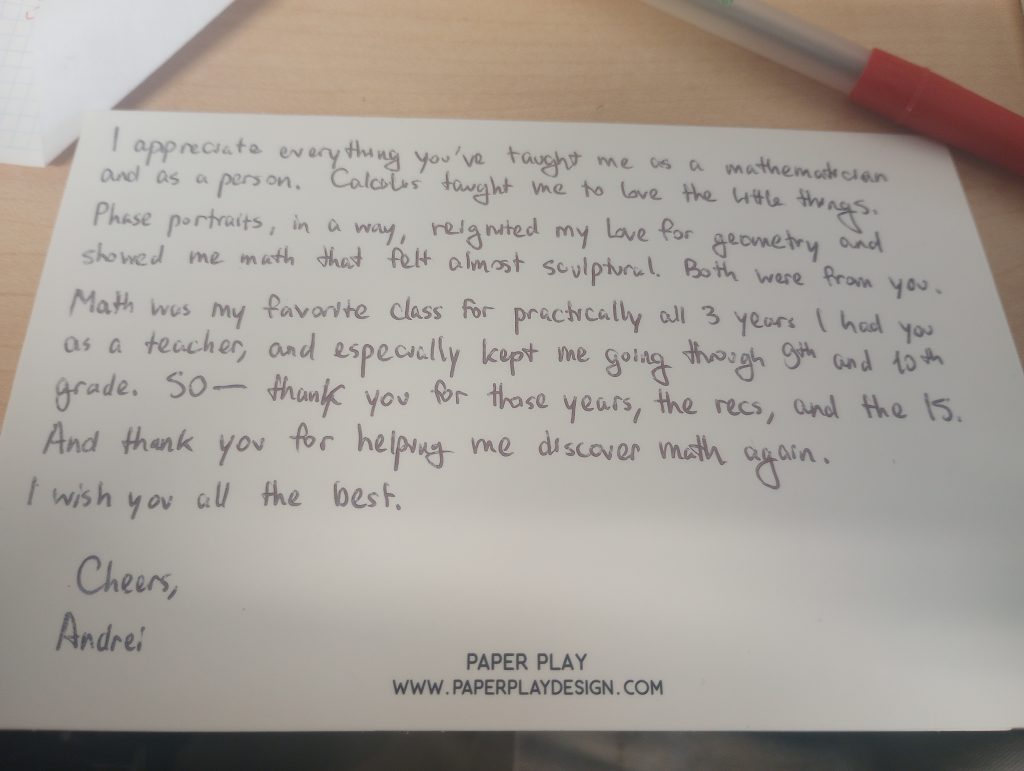 I appreciate everything you've taught me as a mathematician
and as a person. Calculus taught me to love the little things.
Phase portraits, in a way, reignited my love for geometry and
showed me math that felt almost sculptural. Both were from you.
Math was my favorite class for practically all 3 years I had you
as a teacher, and especially kept me going through 9th and 10th
grade. SO— thank you for those years, the recs, and the 15.
And thank you for helping me discover math again.
I wish you all the best.
Cheers,
Andrei
PAPER PLAY
WWW.PAPERPLAYDESIGN.COM